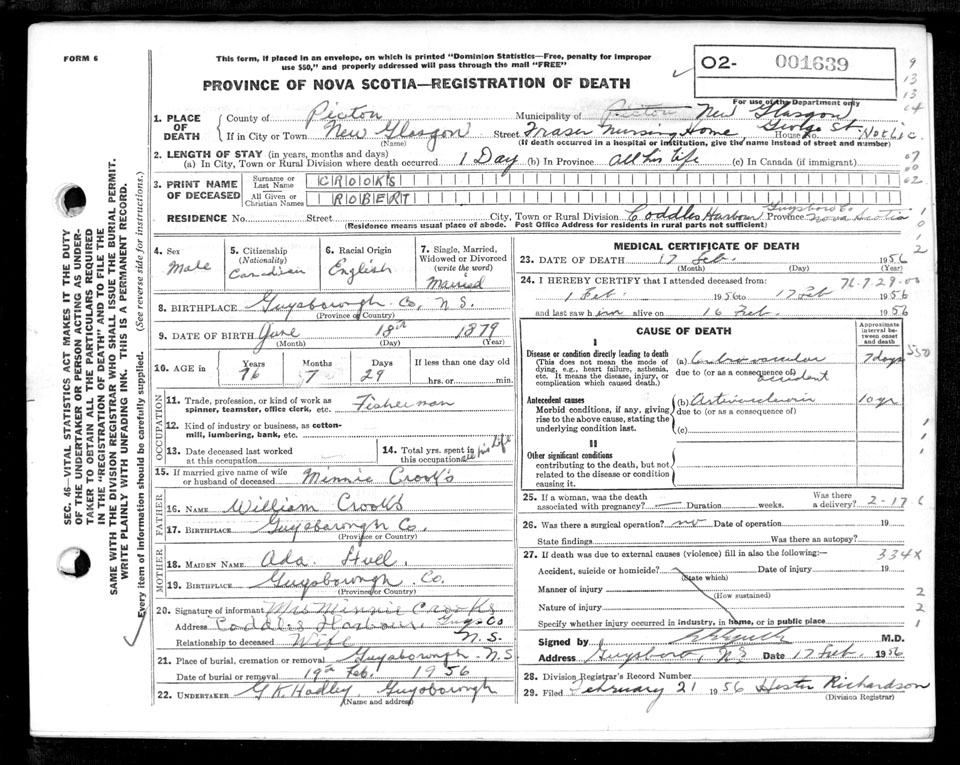 FORM 6
This form, if placed in an envelope, on which is printed "Dominion Statistics—Free, penalty for improper
use $50," and properly addressed will pass through the mail "FREE"
PROVINCE OF NOVA SCOTIA—REGISTRATION OF DEATH
O2- 001639
For use of the Department only
1. PLACE OF DEATH
County of Pictou Municipality of Pictou New Glasgow
If in City or Town New Glasgow Street Fraser Nursing Home, George St. House No.
(Name) (If death occurred in a hospital or institution, give the name instead of street and number)
2. LENGTH OF STAY (in years, months and days)
(a) In City, Town or Rural Division where death occurred 1 Day (b) In Province all his life (c) In Canada (if immigrant)
3. PRINT NAME OF DECEASED
Surname or Last Name CROOKS
All Given or Christian Names ROBERT
RESIDENCE No. Street City, Town or Rural Division Coddles Harbour Guysboro Co Province Nova Scotia
(Residence means usual place of abode. Post Office Address for residents in rural parts not sufficient)
4. Sex Male
5. Citizenship (Nationality) Canadian
6. Racial Origin English
7. Single, Married, Widowed or Divorced (write the word) Married
8. BIRTHPLACE Guysborough Co, N.S.
(Province or Country)
9. DATE OF BIRTH June 18th 1879
(Month) (Day) (Year)
10. AGE in Years 76 Months 7 Days 29 If less than one day old hrs. or min.
OCCUPATION
11. Trade, profession, or kind of work as spinner, teamster, office clerk, etc. Fisherman
12. Kind of industry or business, as cotton-mill, lumbering, bank, etc.
13. Date deceased last worked at this occupation
14. Total yrs. spent in this occupation all his life
15. If married give name of wife or husband of deceased Minnie Crooks
FATHER
16. NAME William Crooks
17. BIRTHPLACE Guysborough Co.
(Province or Country)
MOTHER
18. MAIDEN NAME Ada
19. BIRTHPLACE Guysborough Co.
(Province or Country)
20. Signature of informant Mrs Minnie Crooks
Address Coddles Harbour, Guys Co
Relationship to deceased Wife N.S.
21. Place of burial, cremation or removal Guysborough N.S
Date of burial or removal 19th Feb. 1956
22. UNDERTAKER G.K. Hadley, Guysborough
(Name and address)
MEDICAL CERTIFICATE OF DEATH
23. DATE OF DEATH 17 Feb. 1956
(Month) (Day) (Year)
24. I HEREBY CERTIFY that I attended deceased from: 76-7-29-00
1 Feb. 1956 to 17 Feb 1956
and last saw him alive on 16 Feb. 1956
CAUSE OF DEATH
Approximate interval between onset and death
I
Disease or condition directly leading to death
(This does not mean the mode of dying, e.g., heart failure, asthenia, etc. It means the disease, injury, or complication which caused death.)
(a) accident 7 days
due to (or as a consequence of)
Antecedent causes
Morbid conditions, if any, giving rise to the above cause, stating the underlying condition last.
(b) 10 yr
due to (or as a consequence of)
(c)
II
Other significant conditions
contributing to the death, but not related to the disease or condition causing it.
25. If a woman, was the death associated with pregnancy? Duration weeks. Was there a delivery? 2-17
26. Was there a surgical operation? no Date of operation 19
State findings Was there an autopsy?
27. If death was due to external causes (violence) fill in also the following:— 334X
Accident, suicide or homicide? Date of injury 19
(State which)
Manner of injury
(How sustained)
Nature of injury
Specify whether injury occurred in industry, in home, or in public place
Signed by M.D.
Address Guysboro, NS Date 17 Feb. 1956
28. Division Registrar's Record Number
29. Filed February 21 1956 Hester Richardson
(Division Registrar)
SEC. 46—VITAL STATISTICS ACT MAKES IT THE DUTY
OF THE UNDERTAKER OR PERSON ACTING AS UNDER-
TAKER TO OBTAIN ALL THE PARTICULARS REQUIRED
IN THE "REGISTRATION OF DEATH" AND TO FILE THE
SAME WITH THE DIVISION REGISTRAR WHO SHALL ISSUE THE BURIAL PERMIT.
WRITE PLAINLY WITH UNFADING INK. THIS IS A PERMANENT RECORD.
Every item of information should be carefully supplied. (See reverse side for instructions.)